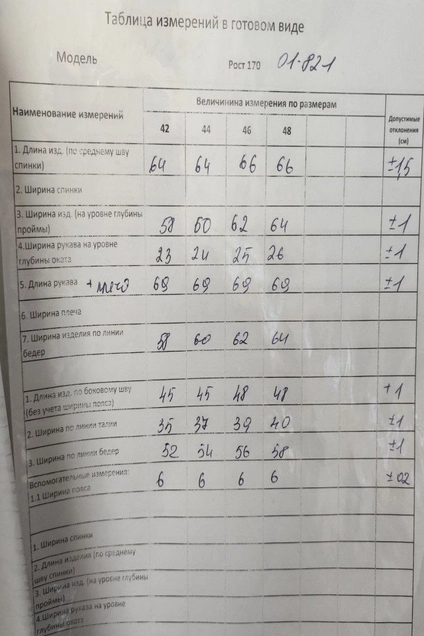 Таблица измерений в готовом виде
Модель Рост 170 01-821
Наименование измерений Величинина измерения по размерам Допустимые отклонения (см)
42 44 46 48
1. Длина изд. (по среднему шву спинки) 64 64 66 66 ±1,5
2. Ширина спинки
3. Ширина изд. (на уровне глубины проймы) 58 60 62 64 ±1
4.Ширина рукава на уровне глубины оката 23 24 25 26 ±1
5. Длина рукава + плечо 69 69 69 69 ±1
6. Ширина плеча
7. Ширина изделия по линии бедер 58 60 62 64
1. Длина изд. по боковому шву (без учета ширины пояса) 45 45 48 48 +1
2. Ширина по линии талии 35 37 39 40 ±1
3. Ширина по линии бедер 52 54 56 58 ±1
Вспомогательные измерения:
1.1 Ширина пояса 6 6 6 6 ±02
1. Ширина спинки
2. Длина изделия (по среднему шву спинки)
3. Ширина изд. (на уровне глубины проймы)
4.Ширина рукава на уровне глубины оката